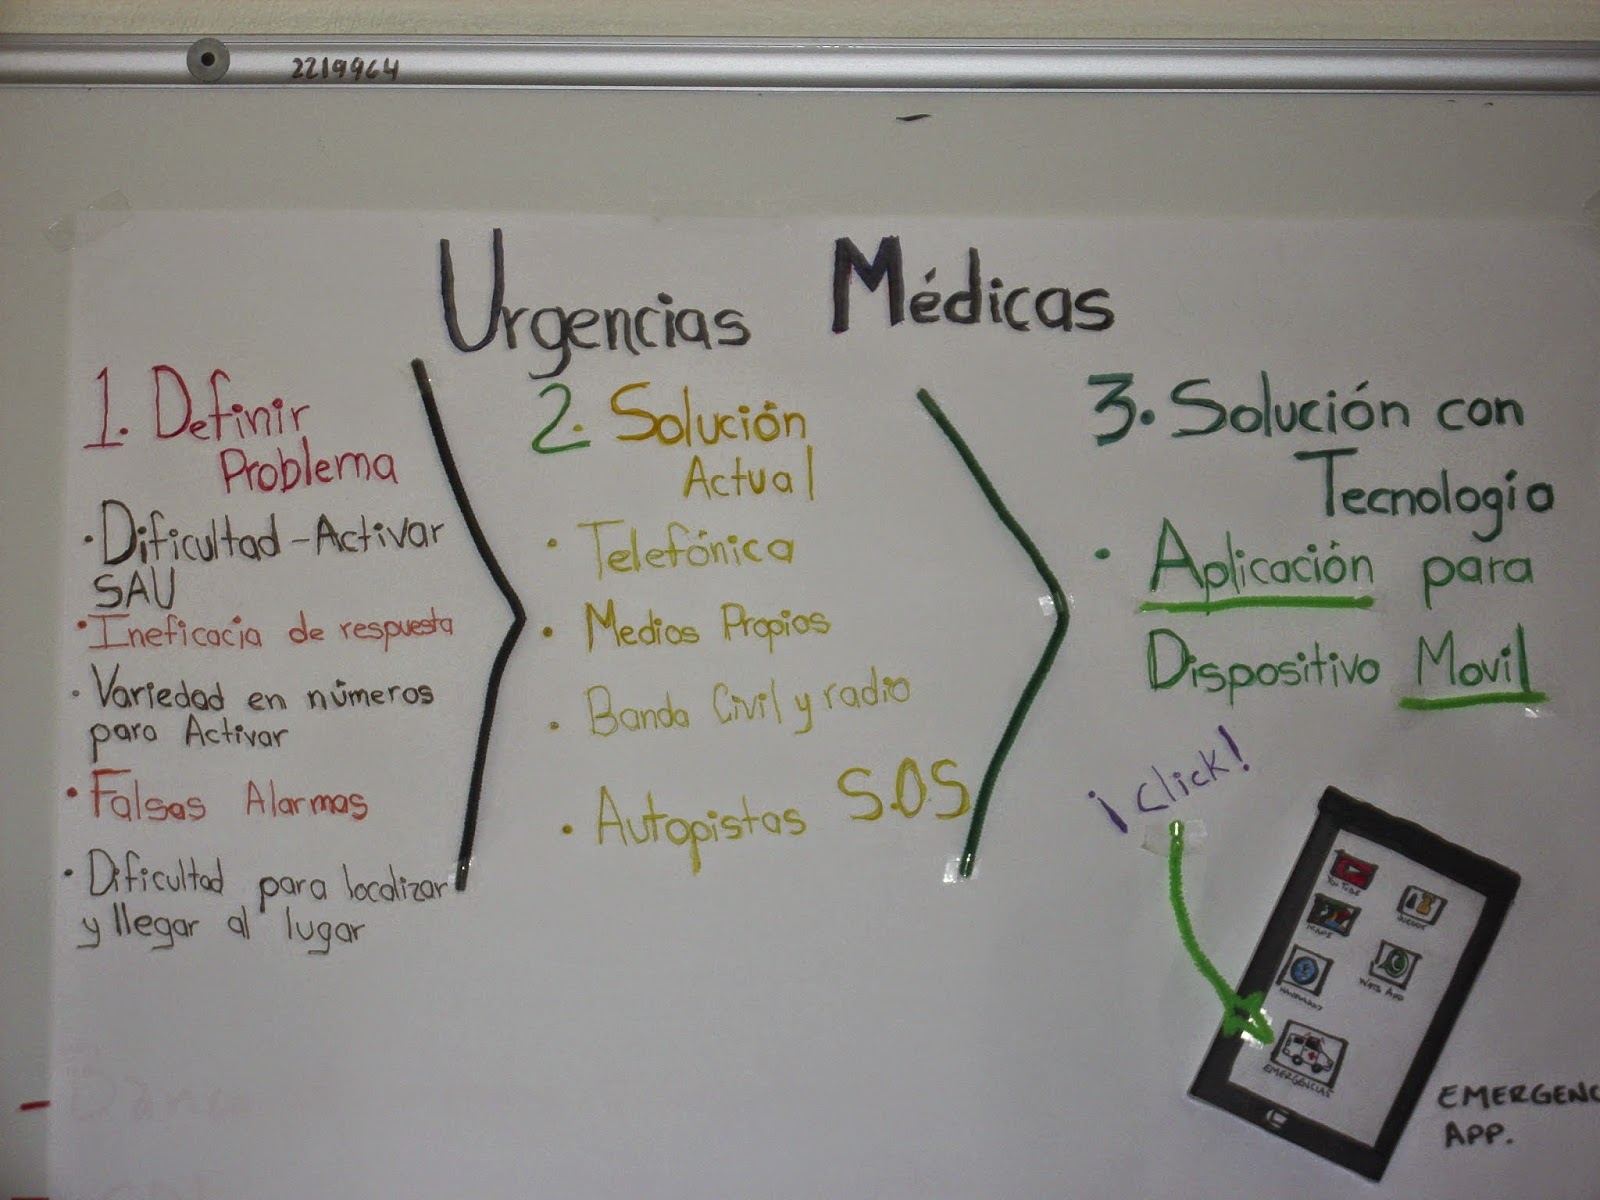 2219964
Urgencias Médicas
1. Definir
Problema
• Dificultad - Activar
SAU
• Ineficacia de respuesta
• Variedad en números
para Activar
• Falsas Alarmas
• Dificultad para localizar
y llegar al lugar
2. Solución
Actual
• Telefónica
• Medios Propios
• Banda Civil y radio
• Autopistas S.O.S
3. Solución con
Tecnología
• Aplicación para
Dispositivo Movil
¡Click!
YouTube
MAPS
Wats App
EMERGENCIAS
EMERGENC
APP.